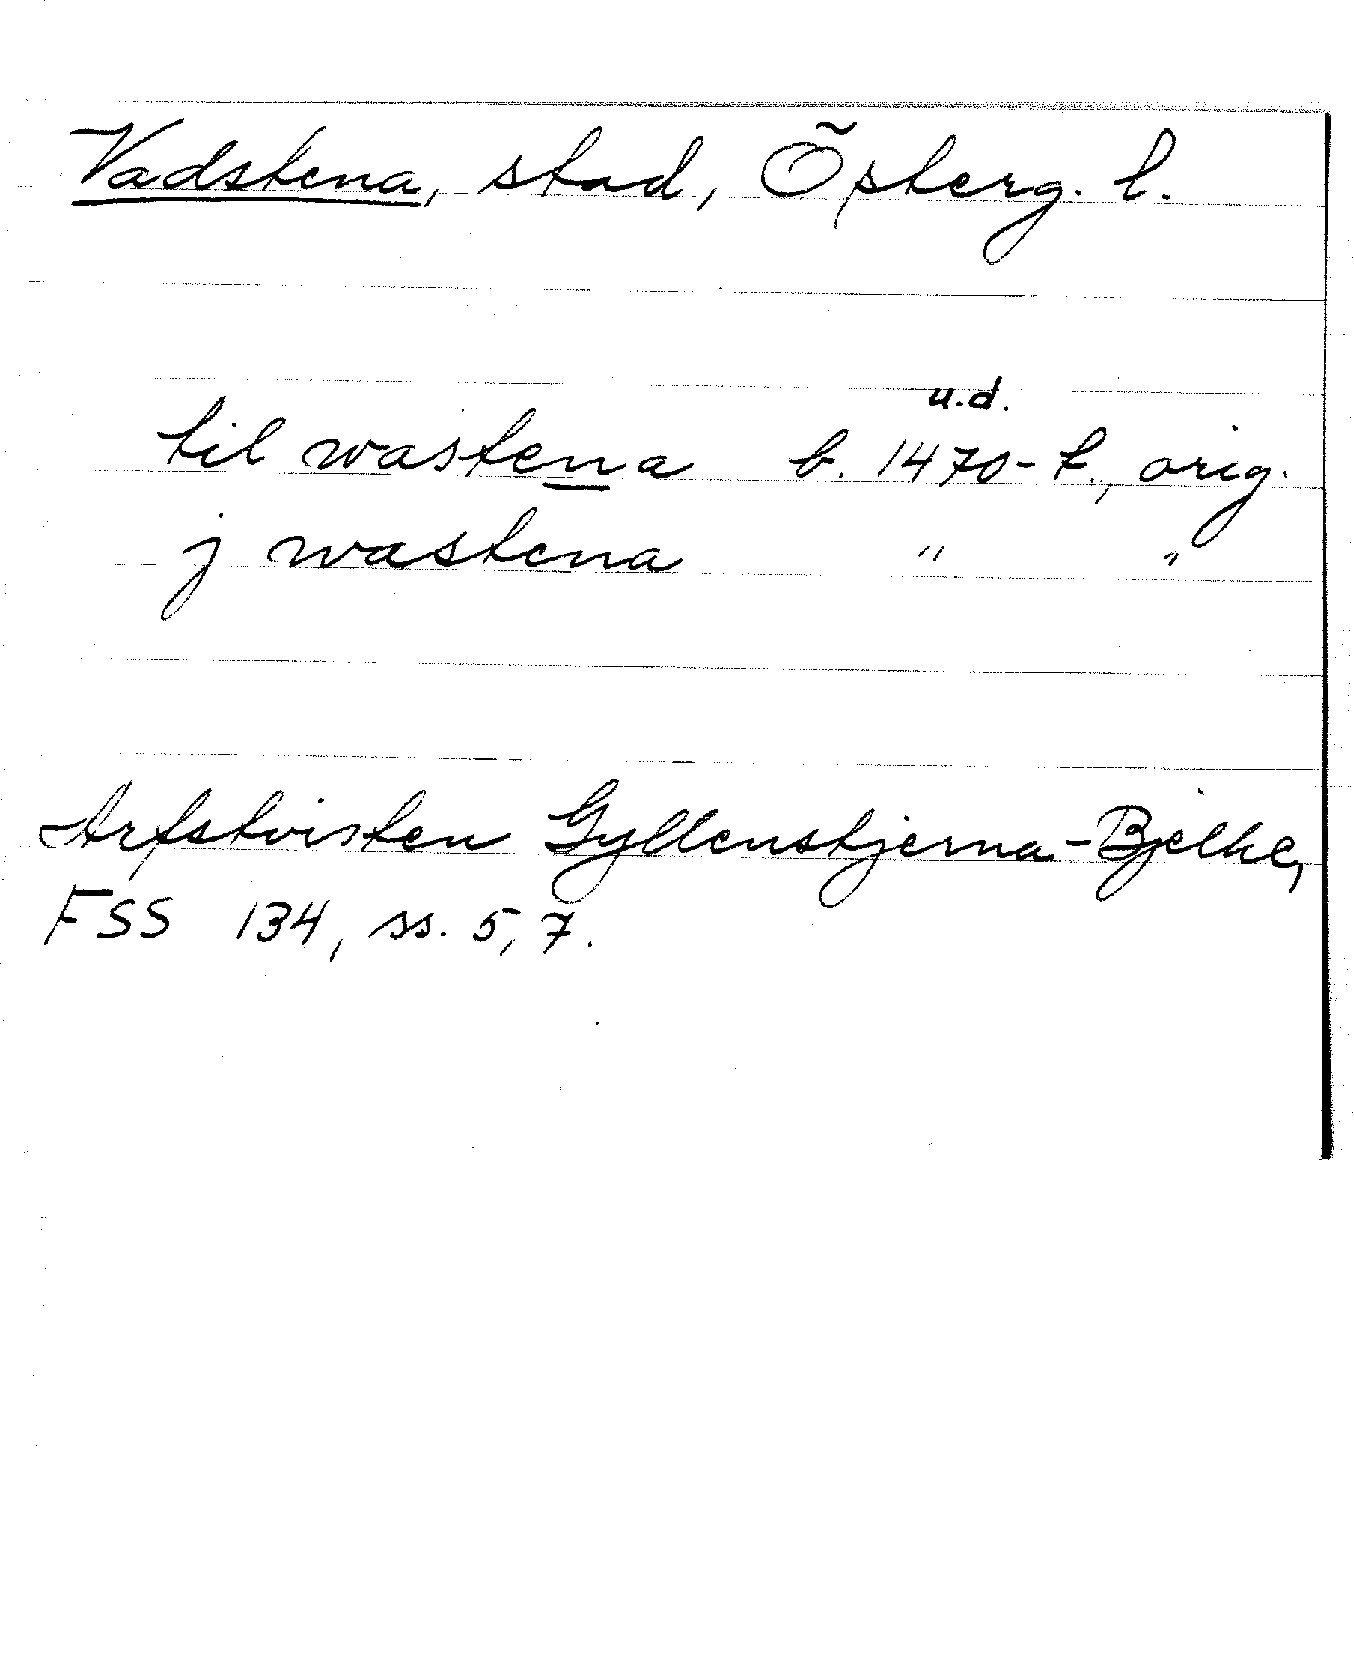 Vadstena, stad, Östergːl.
u.d.
til wastena b. 1470-t., orig.
j wastena " "
Arfstvisten Gyllenstjerna-Bjelke,
FSS 134, ss. 5, 7.